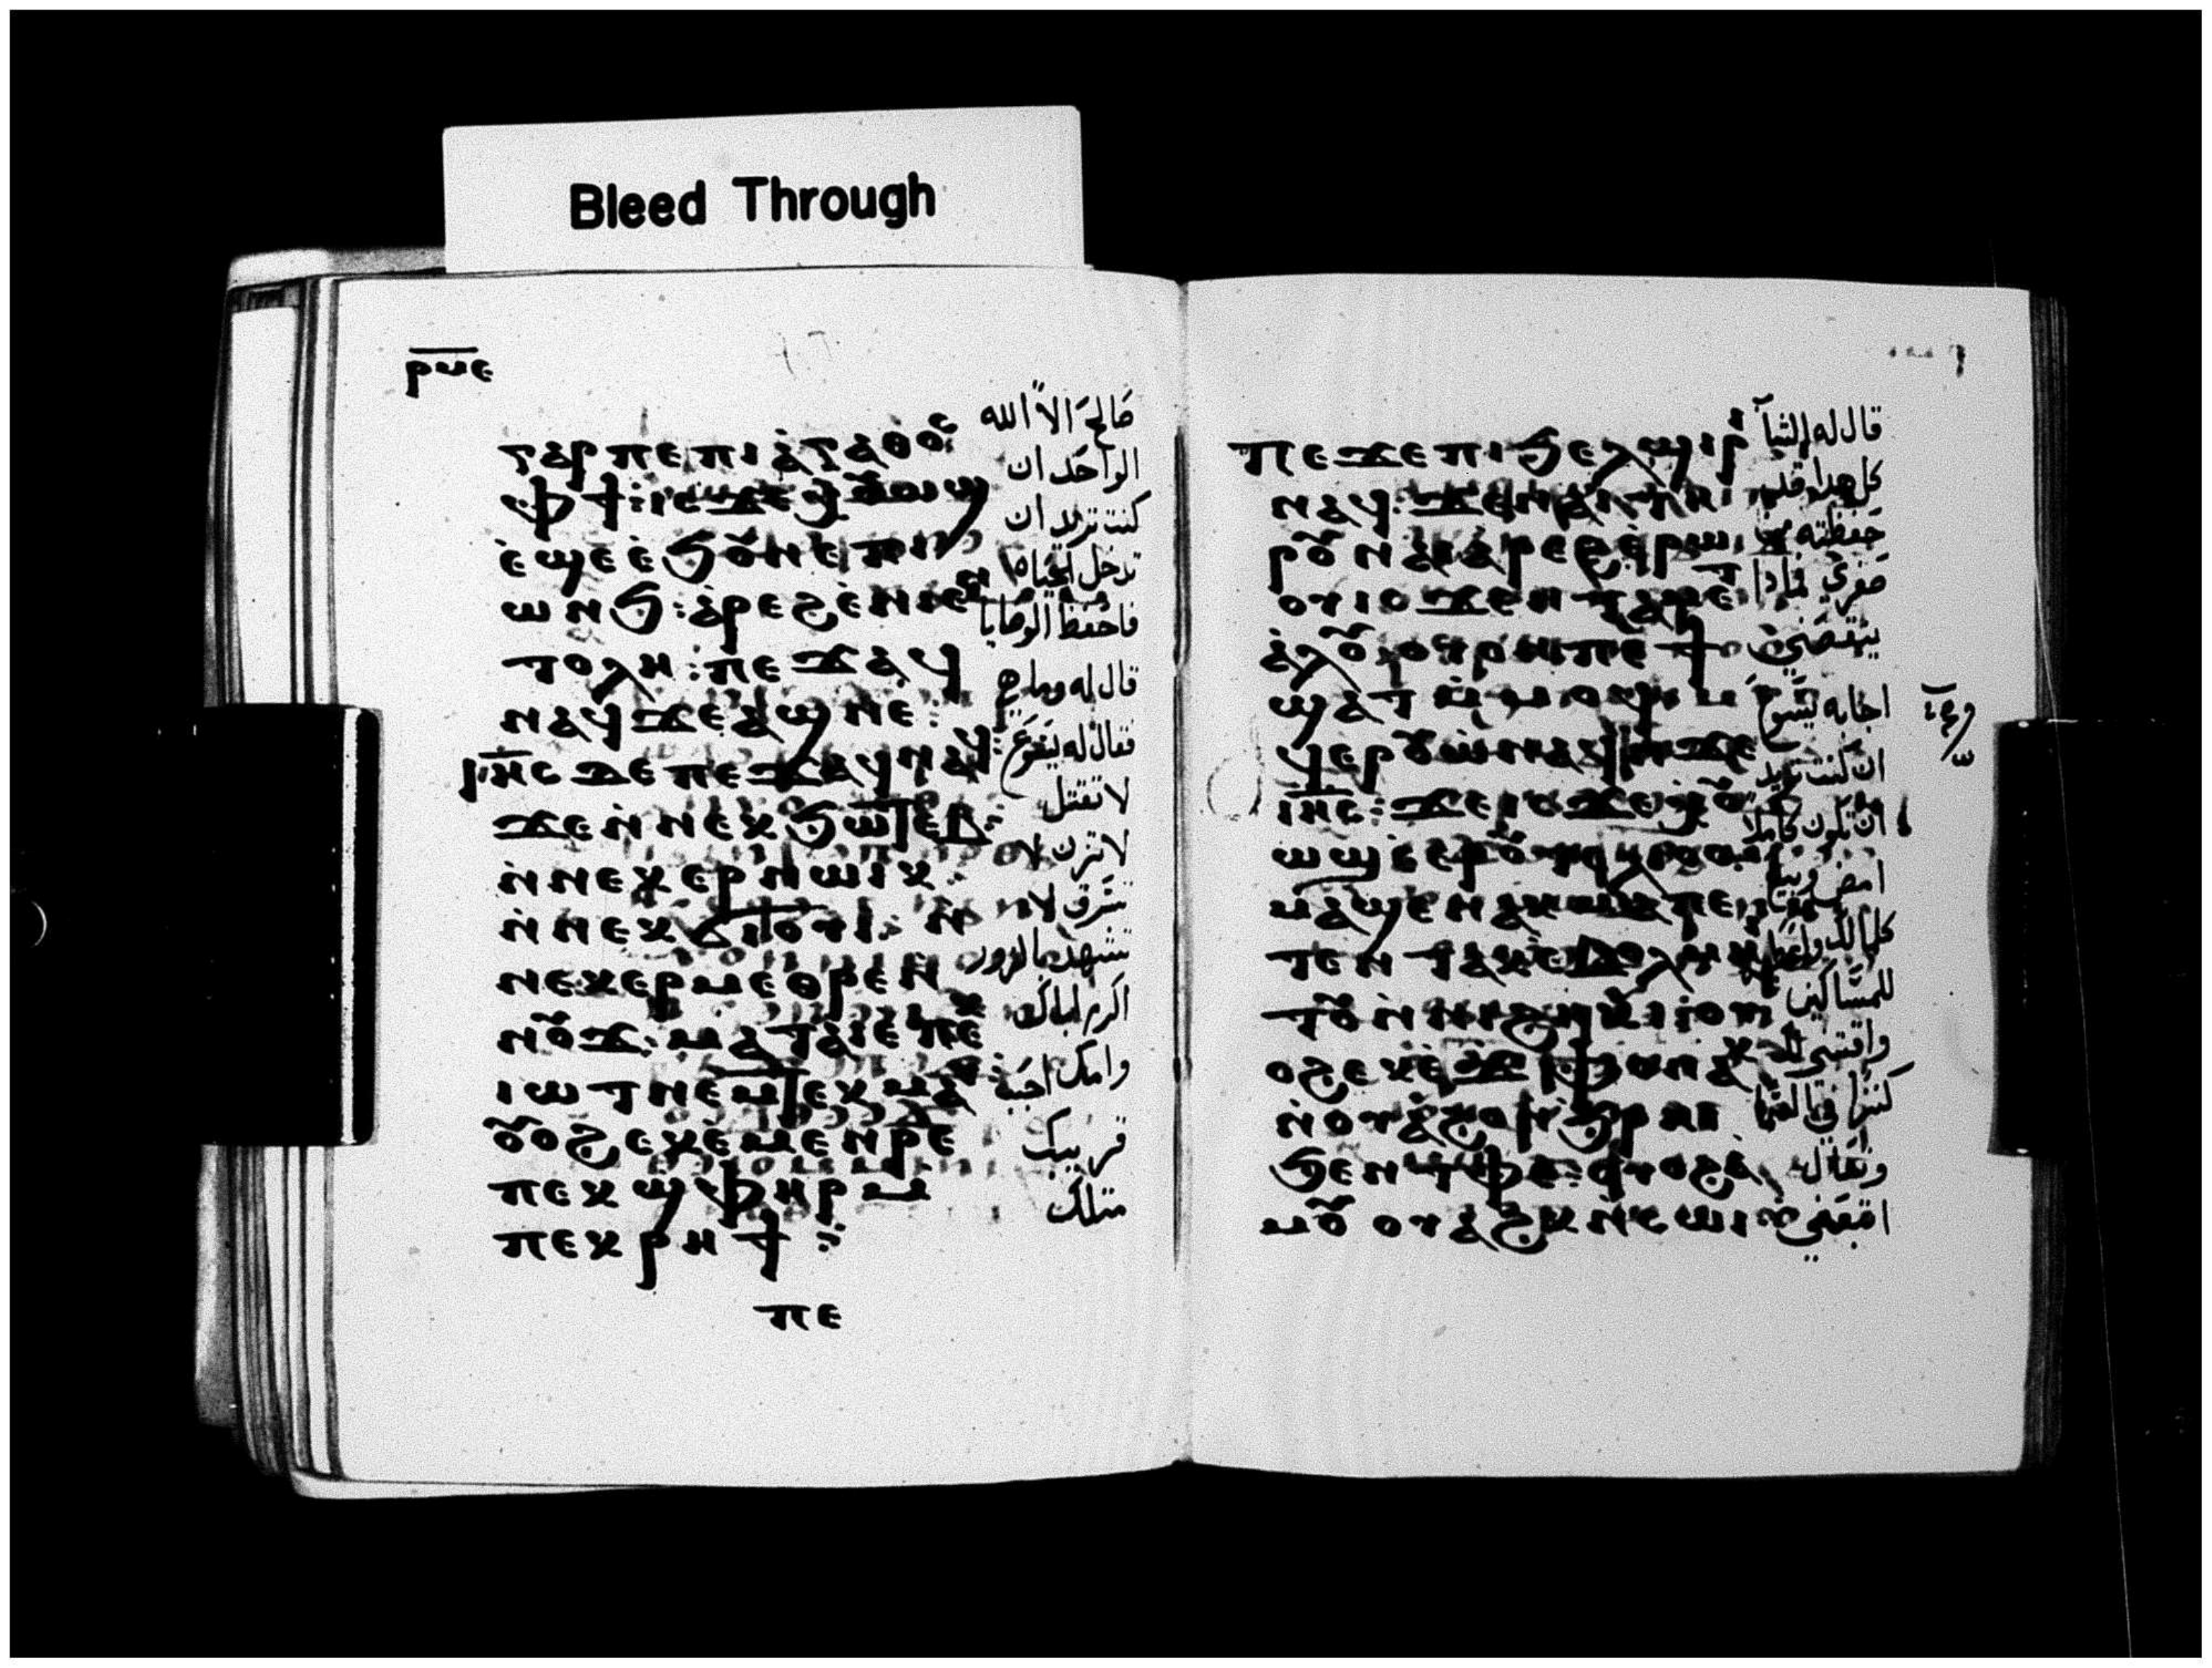 Bleed Through
ⲣⲙⲉ
ⲅⲁⲣ ⲡⲉ ⲡⲓⲁ̀ⲅⲁⲑⲟⲥ
ⲫϯ: ⲓⲥϫⲉ ⲭⲟⲩⲱϣ
ⲉ̀ϣⲉ ⲉ̀ϧⲟⲩⲛ ⲉ̀ⲡⲓ
ⲱⲛϧ: ⲁ̀ⲣⲉϩ ⲉ̀ⲛⲓⲉⲛ
ⲧⲟⲗⲏ: ⲡⲉϫⲁϥ
ⲛⲁϥ ϫⲉ ⲁϣ ⲛⲉ:
ⲓⲏⲥ ⲇⲉ ⲡⲉϫⲁϥ ⲛⲁϥ:
ϫⲉ ⲛ̀ⲛⲉⲕϧⲱⲧⲉⲃ:
ⲛ̀ⲛⲉⲕⲉⲣⲛⲱⲓⲕ:
ⲛ̀ⲛⲉⲕϭⲓⲟⲩⲓ: ⲛ̀
ⲛⲉⲕⲉⲣⲙⲉⲑⲣⲉ ⲛ̀
ⲛⲟⲩϫ: ⲙⲁⲧⲁⲓⲉ ⲡⲉⲕ
ⲓⲱⲧ ⲛⲉⲙ ⲧⲉⲕⲙⲁⲩ:
ⲟⲩⲟϩ ⲉⲕⲉ̀ⲙⲉⲛⲣⲉ
ⲡⲉⲕϣⲫⲏⲣ ⲙ̀
ⲡⲉⲕⲣⲏϯ:
ⲡⲉ
صالح الا الله
الواحد ان
كنت تريد ان
تدخل الحياه
فاحفظ الوصايا
قال له وما هي
فقال له يسوع
لا تقتل
لا تزن لا
تسرق لا
تشهد بالزور
اكرم اباك
وامك احبب
قريبك
مثلك
ⲡⲉϫⲉ ⲡⲓϧⲉⲗϣⲓⲣⲓ
ⲛⲁϥ: ϫⲉ ⲛⲁⲓ ⲧⲏ
ⲣⲟⲩ ⲁⲓⲁ̀ⲣⲉϩ ⲉ̀ⲣⲱⲟⲩ
ⲟⲩ ⲓⲥϫⲉⲛ ⲧⲁⲙⲉⲧ
ⲁ̀ⲗⲟⲩ ⲟⲩ ⲡⲉϯ
ϣⲁⲧ ⲙ̀ⲙⲟϥ: ⲁ
ϥⲉⲣⲟⲩⲱ ⲛⲁϥ ⲛ̀ϫⲉ
ⲓⲏⲥ: ϫⲉ ⲓⲥϫⲉ ⲭⲟⲩ
ⲱϣ ⲉ̀ⲉⲣⲟⲩⲧⲉⲗⲓⲟⲥ
ⲙⲁϣⲉ ⲛⲁⲕ ⲙⲁ ⲡⲉ
ⲧⲉⲛⲧⲁⲕ ⲉ̀ⲃⲟⲗ ⲙⲏⲓ
ⲧⲟⲩ ⲛ̀ⲛⲓϩⲏⲕⲓ ⲟⲩ
ⲟϩ ⲉⲕⲉ̀ϫⲫⲟ ⲛⲁⲕ
ⲛ̀ⲟⲩⲁ̀ϩⲟ ⲛ̀ϩⲣⲏⲓ
ϧⲉⲛ ⲧⲫⲉ: ⲟⲩⲟϩ ⲁ̀
ⲙⲟⲩ ⲟⲩⲁϩⲕ ⲛ̀ⲥⲱⲓ:
قال له الشاب
كل هدا قد
حفظته من
صغري فمادا
ينقصني
اجابه يسوع
ان كنت تريد
ان تكون كاملا
امض وبيع
كلما لك واعط
للمساكين
واقتني لك
كنزا في السما
وتعال
اتبعني